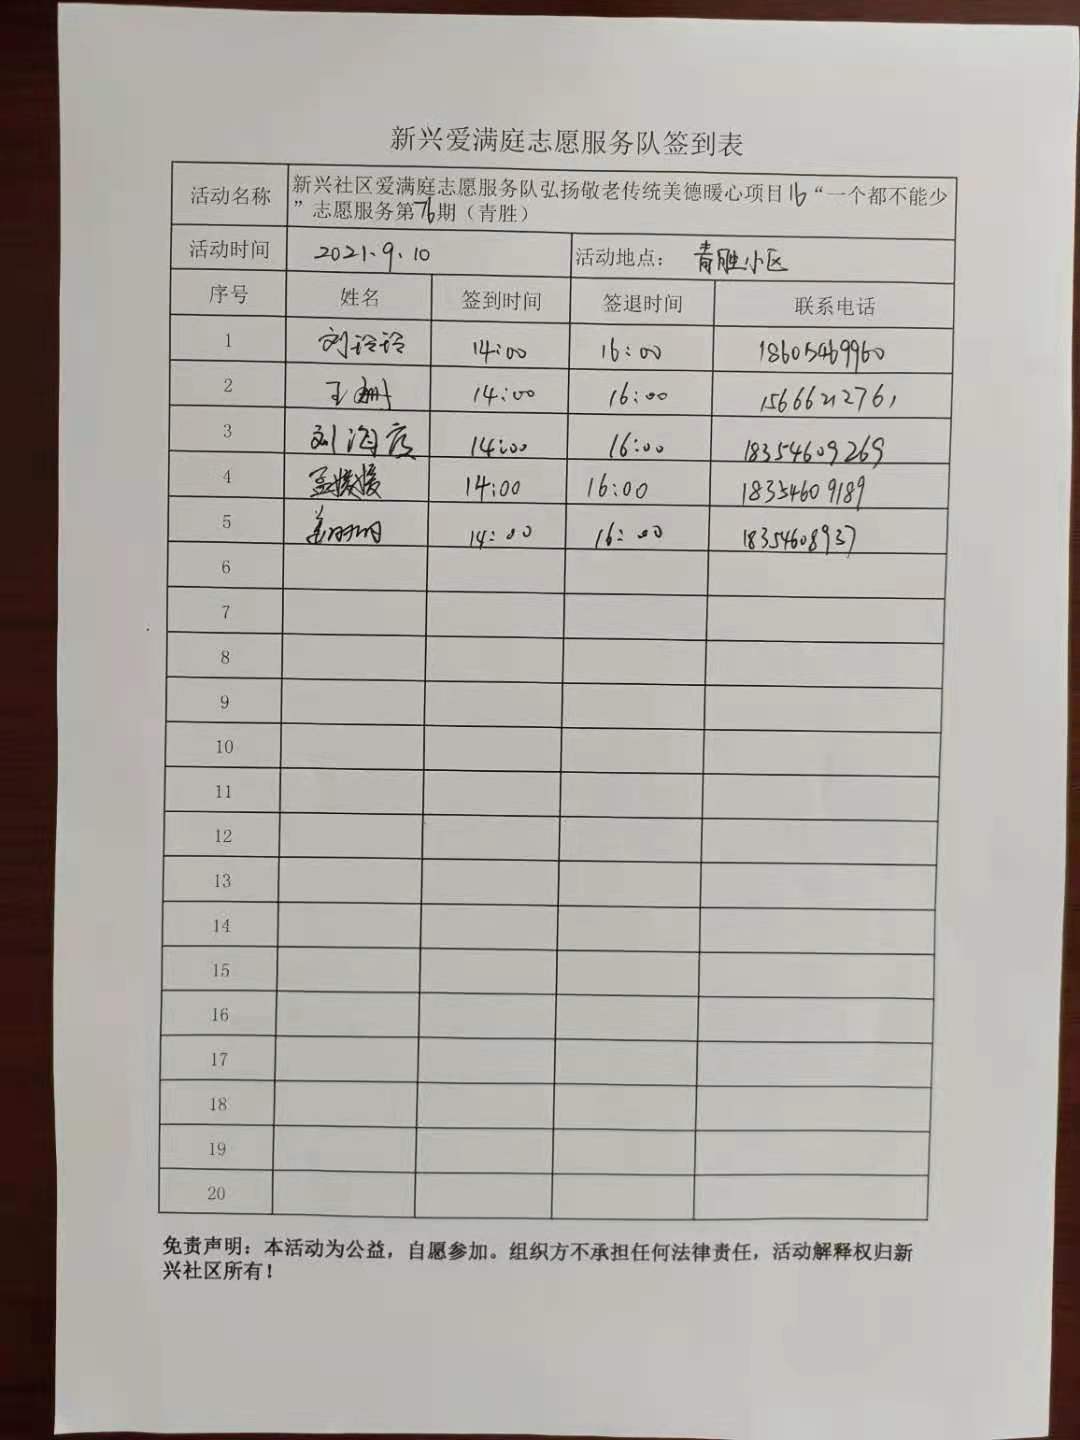 新兴爱满庭志愿服务队签到表
活动名称 新兴社区爱满庭志愿服务队弘扬敬老传统美德暖心项目16“一个都不能少
”志愿服务第76期（青胜）
活动时间 2021.9.10 活动地点： 青胜小区
序号 姓名 签到时间 签退时间 联系电话
1 刘玲玲 14:00 16:00 18605469960
2 王珊 14:00 16:00 15666212761
3 刘海 14:00 16:00 18354609269
4 孟媛媛 14:00 16:00 18354609189
5 14:00 16:00 18354608937
6
7
8
9
10
11
12
13
14
15
16
17
18
19
20
免责声明：本活动为公益，自愿参加。组织方不承担任何法律责任，活动解释权归新
兴社区所有！